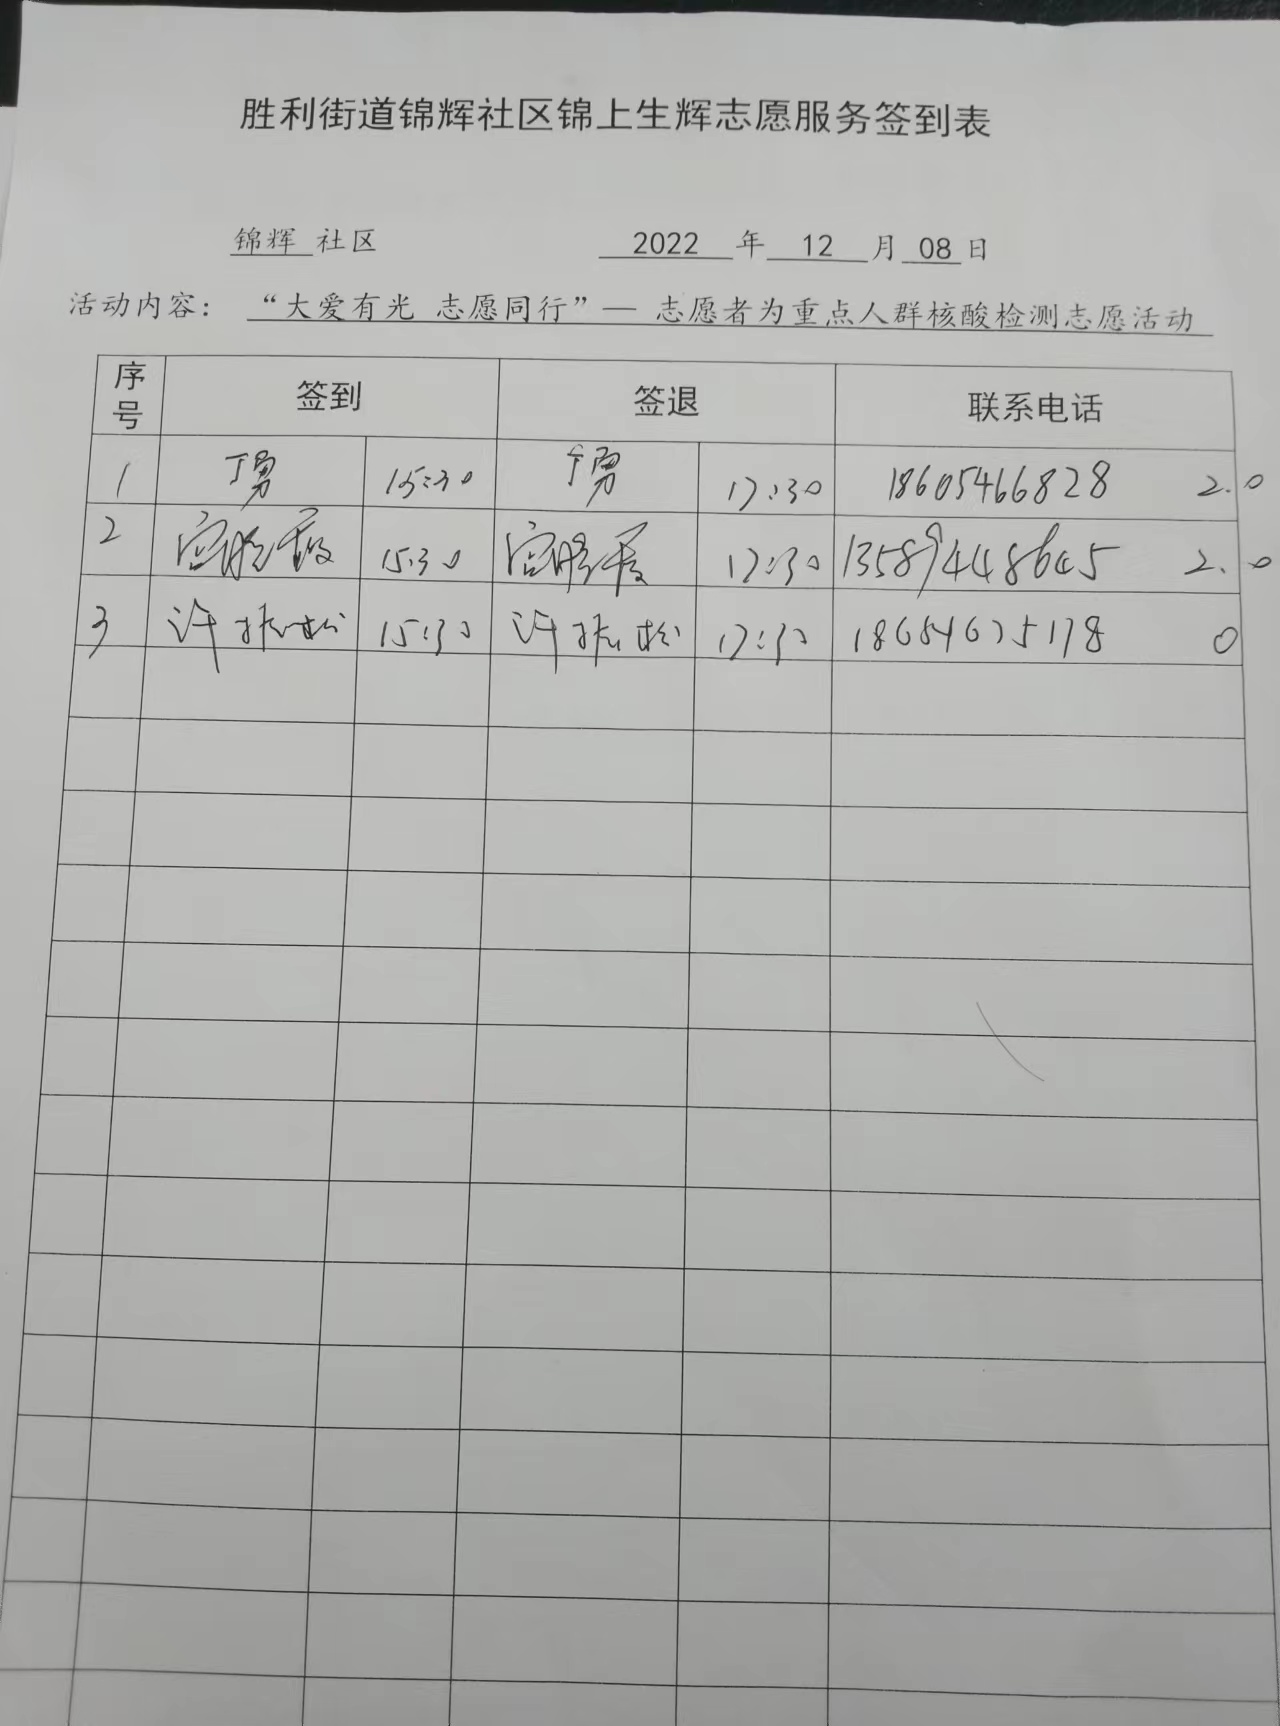 胜利街道锦辉社区锦上生辉志愿服务签到表
锦辉 社区 2022 年 12 月 08 日
活动内容： “大爱有光 志愿同行”— 志愿者为重点人群核酸检测志愿活动
序号 签到 签退 联系电话
1 丁勇 15:30 丁勇 17:30 18605466828 2.0
2 15:30 17:30 13589448645 2.0
3 许振松 15:30 许振松 17:30 18654675178 0